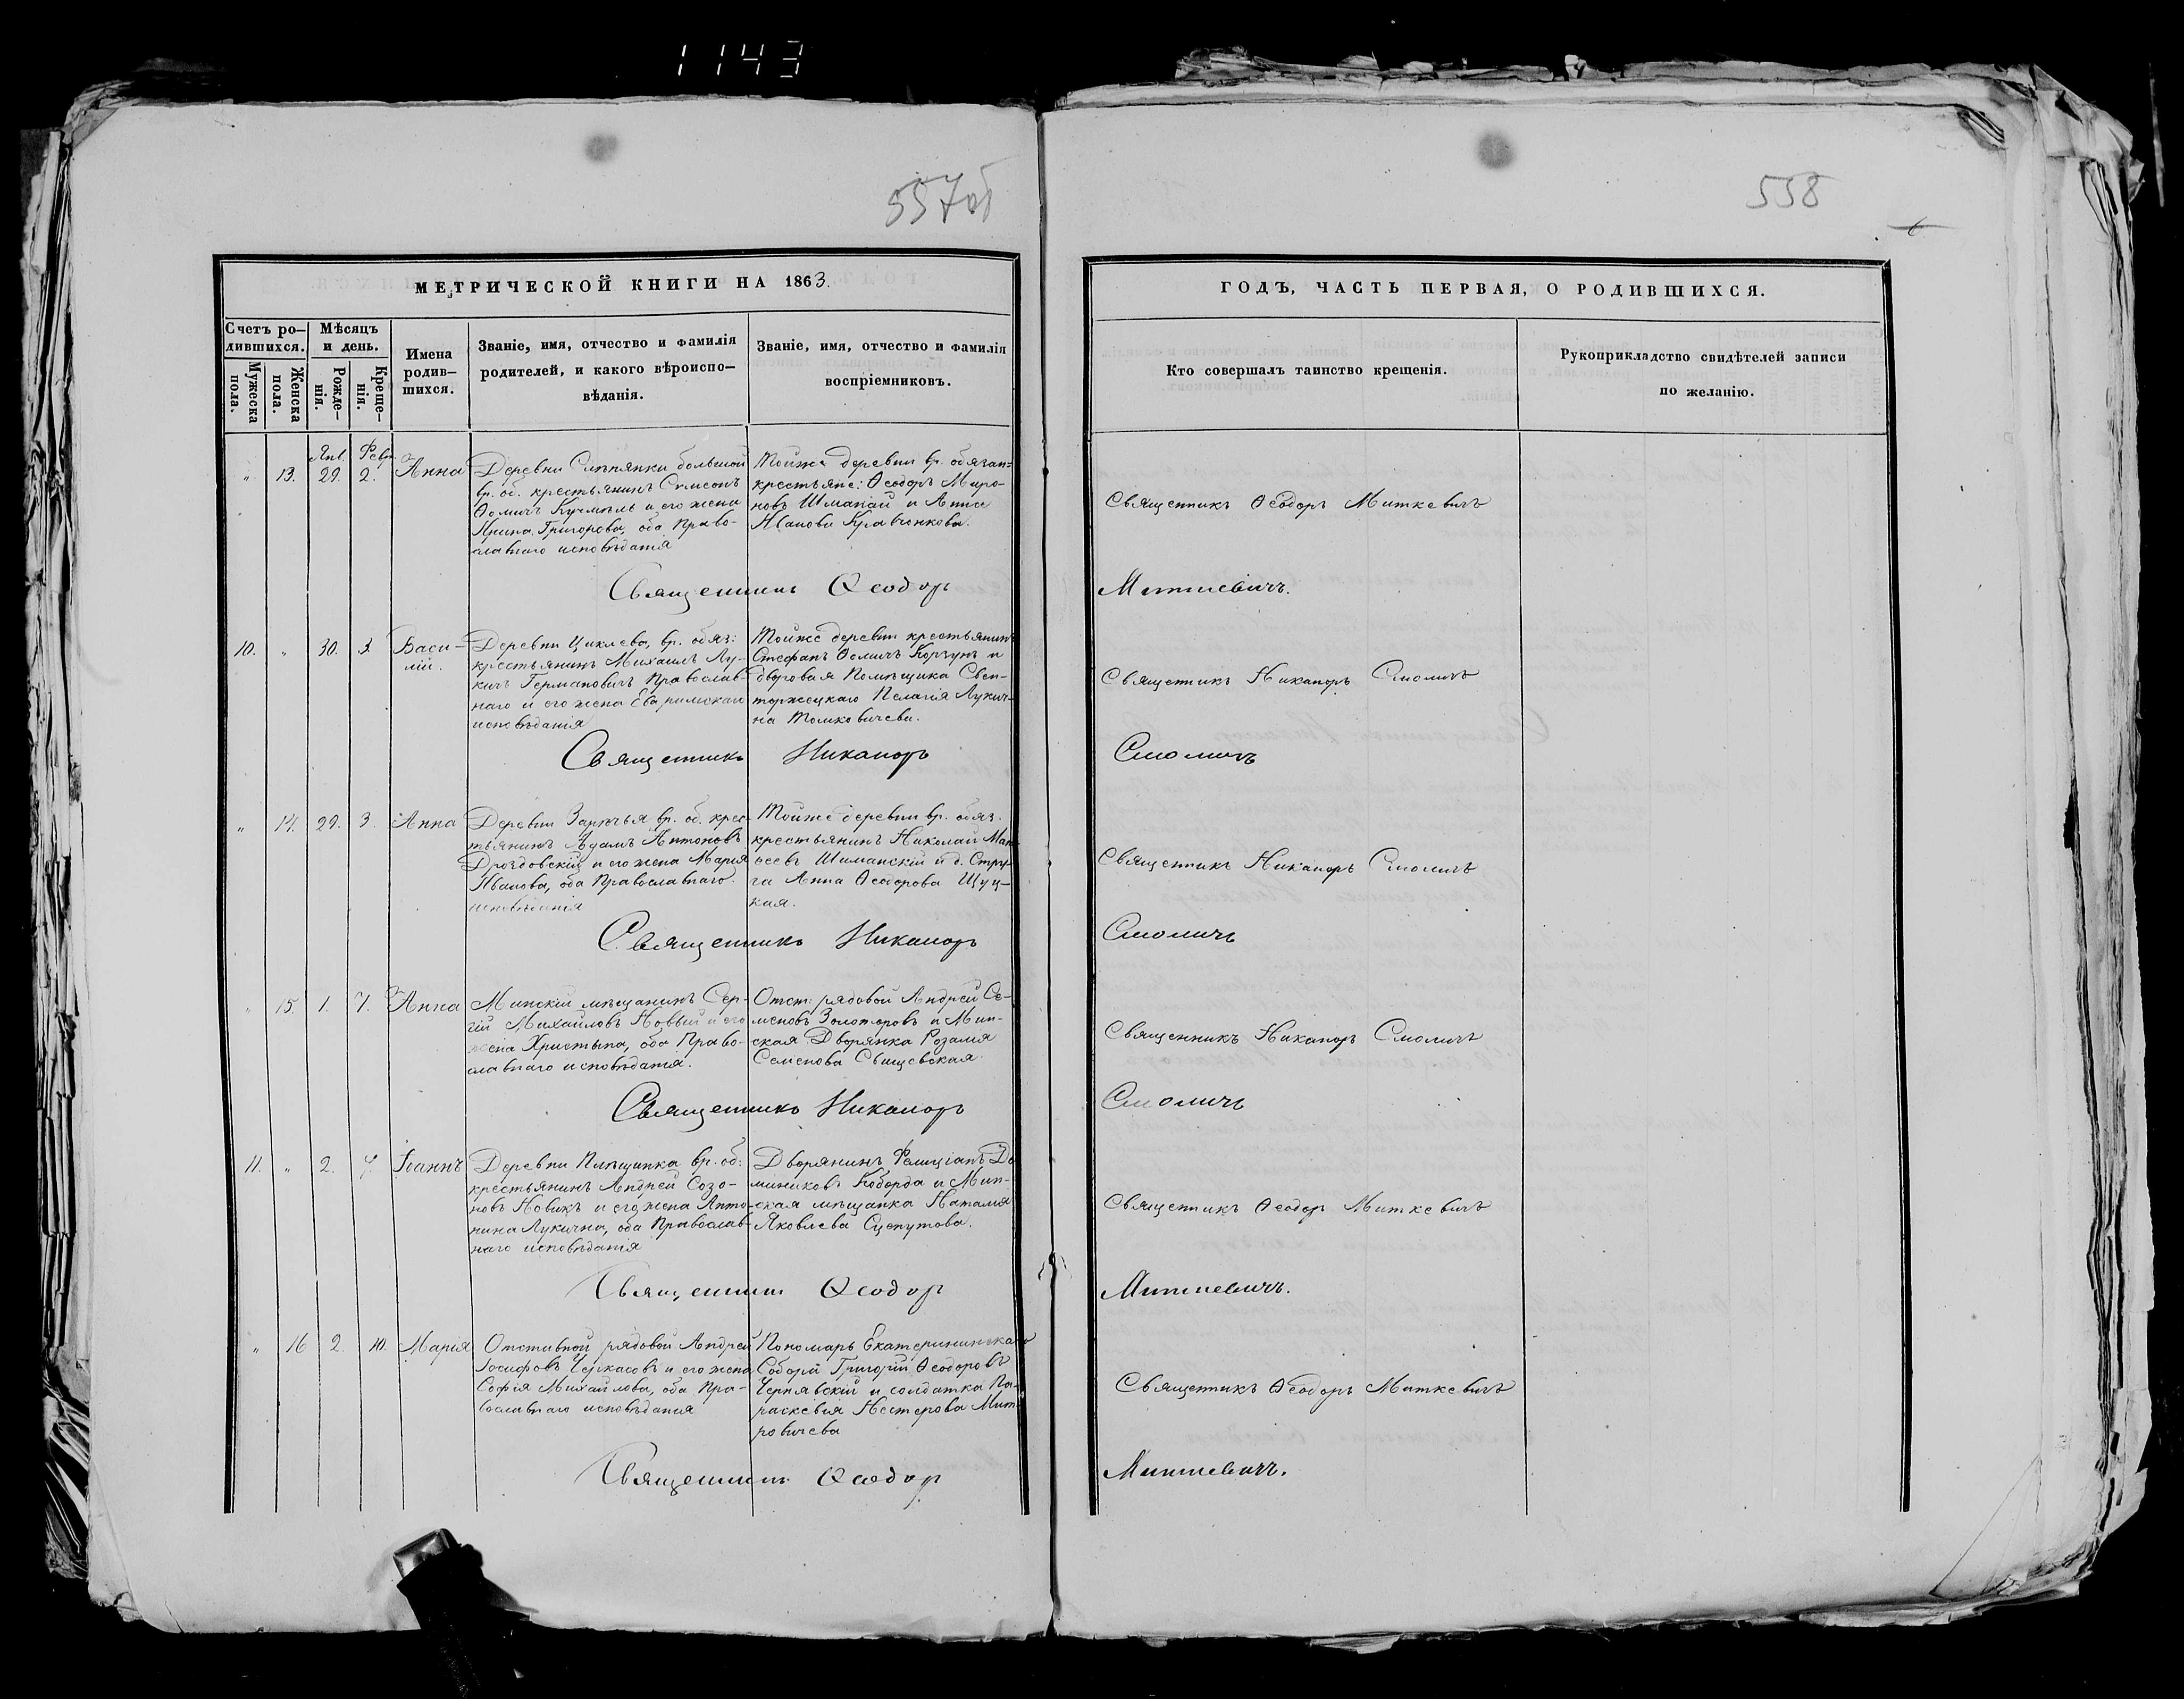 1143
557об
558
6
МЕТРИЧЕСКОЙ КНИГИ НА 1863.
Счетъ ро-
дившихся.
Мужеска
пола.
Женска
пола.
Мѣсяцъ
и день.
Рожде-
нія.
Креще-
нія.
Имена
родив-
шихся.
Званіе, имя, отчество и фамилія
родителей, и какого вѣроиспо-
вѣданія.
Званіе, имя, отчество и фамилія
воспріемниковъ.
ГОДЪ, ЧАСТЬ ПЕРВАЯ, О РОДИВШИХСЯ.
Кто совершалъ таинство крещенія.
Рукоприкладство свидѣтелей записи
по желанію.
Янв. Февр.
" 13. 29. 2. Анна
Деревни Слѣпянки большой
вр. об. крестьянинъ Сѵмеонъ
Ѳомичъ Кучмѣль и его жена
Ирина Григорова, оба право-
славнаго исповѣданія
Тойже деревни вр. обязан-
крестьяне: Ѳеодоръ Миро-
новъ Шманай и Анна
Иванова Кравчонкова.
Священникъ Ѳеодоръ Миткевичъ
Священникъ Ѳеодоръ Миткевичъ.
10. " 30. 3. Васи-
лій.
Деревни Цнилева, вр. обяз:
крестьянинъ Михаилъ Лу-
кичъ Германовичъ православ-
наго и его жена Ева римскаго
исповѣданія
Тойже деревни крестьянинъ
Стефанъ Ѳомичъ Корзунъ и
дворовая Помѣщика Свен-
торжецкаго Пелагія Лукич-
на Томковичева.
Священникъ Никаноръ Смоличъ
Священникъ Никаноръ Смоличъ
" 14. 29. 3. Анна
Деревни Зарѣчья вр. об. крес-
тьянинъ Адамъ Антоновъ
Дроздовскій и его жена Марія
Иванова, оба Православнаго
исповѣданія
Тойже деревни вр. обяз.
крестьянинъ Николай Мат-
ѳеевъ Шиманскій и д. Стру-
га Анна Ѳеодорова Щуц-
кая.
Священникъ Никаноръ Смоличъ
Священникъ Никаноръ Смоличъ
" 15. 1. 7. Анна
Минскій мѣщанинъ Сер-
гій Михайловъ Новый и его
жена Христына, оба Право-
славнаго исповѣданія.
Отст: рядовой Андрей Се-
меновъ Золоторовъ и Мин-
ская Дворянка Розалія
Семенова Свищевская.
Священникъ Никаноръ Смоличъ
Священникъ Никаноръ Смоличъ
11. " 2. 7. Іоаннъ
Деревни Плѣщинка вр. об:
крестьянинъ Андрей Созо-
новъ Новикъ и его жена Анто-
нина Лукична, оба Православ-
наго исповѣданія
Дворянинъ Фелиціанъ До-
миниковъ Коборда и Мин-
ская мѣщанка Наталія
Яковлева Сцепутова.
Священникъ Ѳеодоръ Миткевичъ
Священникъ Ѳеодоръ Миткевичъ.
" 16 2. 10. Марія
Отставной рядовой Андрей
Іосифовъ Черкасовъ и его жена
Софія Михайлова, оба Пра-
вославнаго исповѣданія
Пономарь Екатерининскаго
Собора Григорій Ѳеодоровъ
Чернявскій и солдатка Па-
раскевія Нестерова Мит-
ровичева
Священникъ Ѳеодоръ Миткевичъ
Священникъ Ѳеодоръ Миткевичъ.